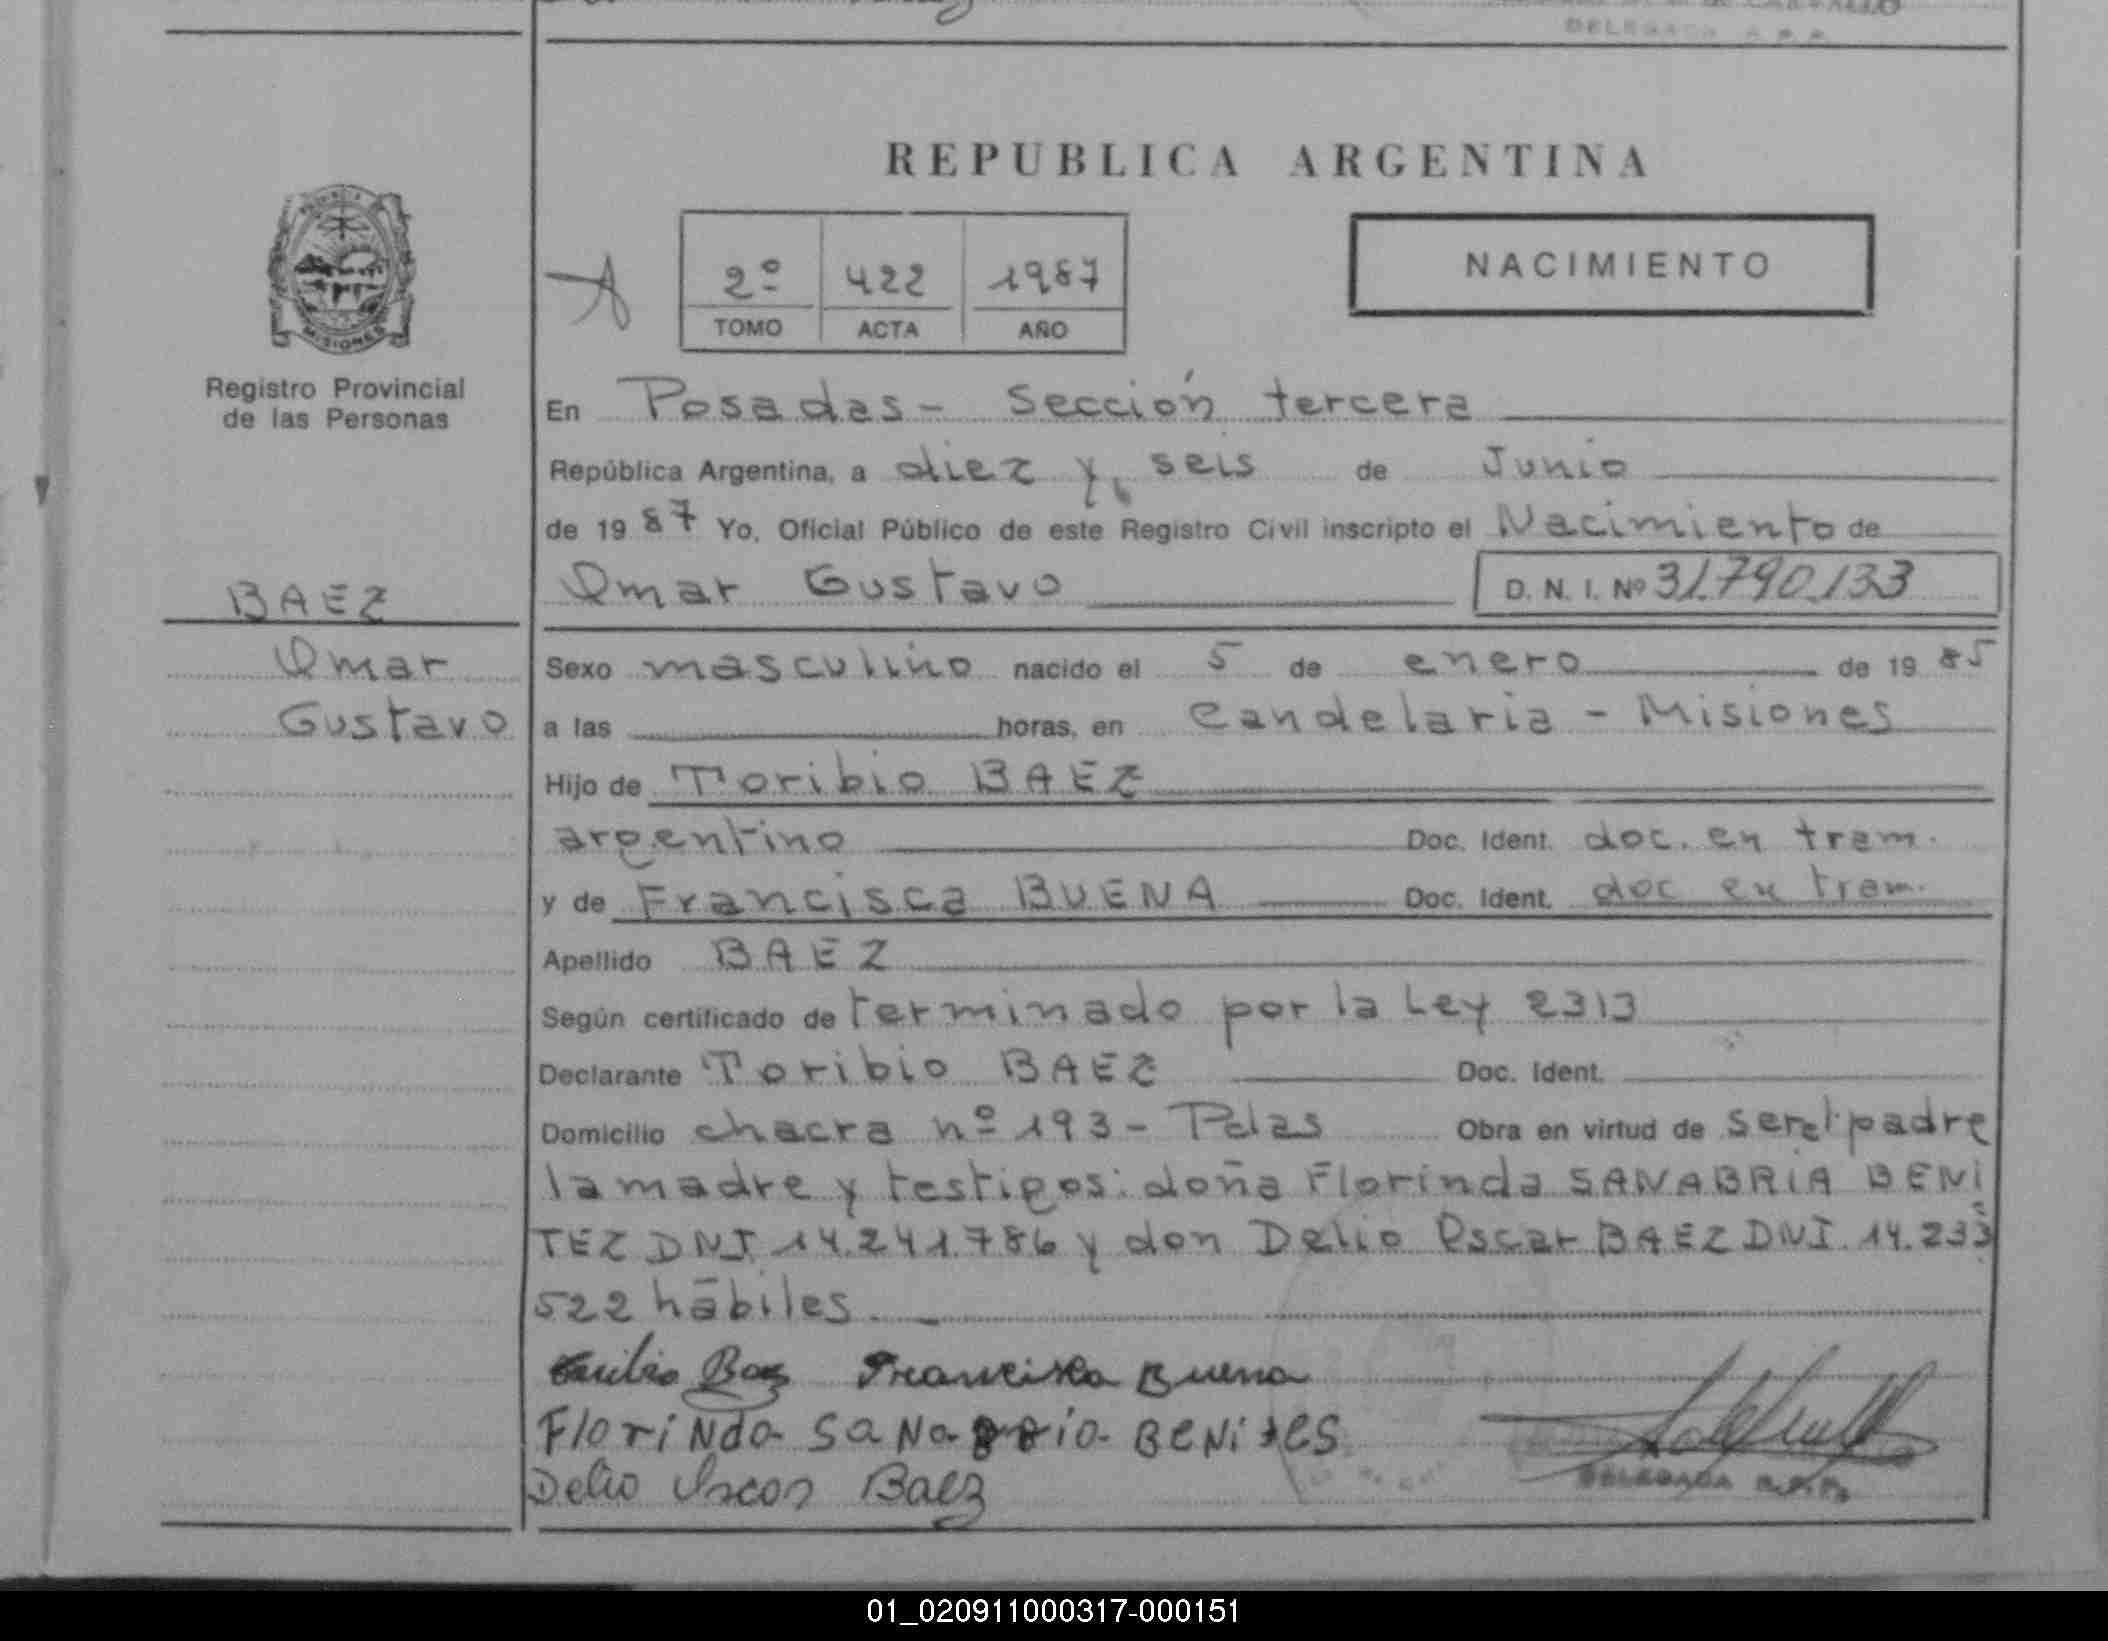 DELEGADA R.P.P.
REPUBLICA ARGENTINA
MISIONES
Registro Provincial
de las Personas
2º 422 1987
TOMO ACTA AÑO
NACIMIENTO
En Posadas - Sección tercera
República Argentina, a diez y seis de Junio
de 19 87 Yo, Oficial Público de este Registro Civil inscripto el Nacimiento de
Omar Gustavo D. N. I. Nº 31.790.133
BAEZ
Omar
Gustavo
Sexo masculino nacido el 5 de enero de 19 85
a las horas, en Candelaria - Misiones
Hijo de Toribio BAEZ
argentino Doc. Ident. doc. en tram.
y de Francisca BUENA Doc. Ident. doc en tram.
Apellido BAEZ
Según certificado de terminado por la Ley 2313
Declarante Toribio BAEZ Doc. Ident.
Domicilio chacra nº 193 - Pdas Obra en virtud de ser el padre
la madre y testigos: doña Florinda SANABRIA BENI
TEZ DNI 14.241.786 y don Delio Oscar BAEZ DNI. 14.233
522 hábiles.
Baez Francisca Buena
Florinda Sanabria Benites
Delio Oscar Baez
DELEGADA R.P.P.
01_020911000317-000151